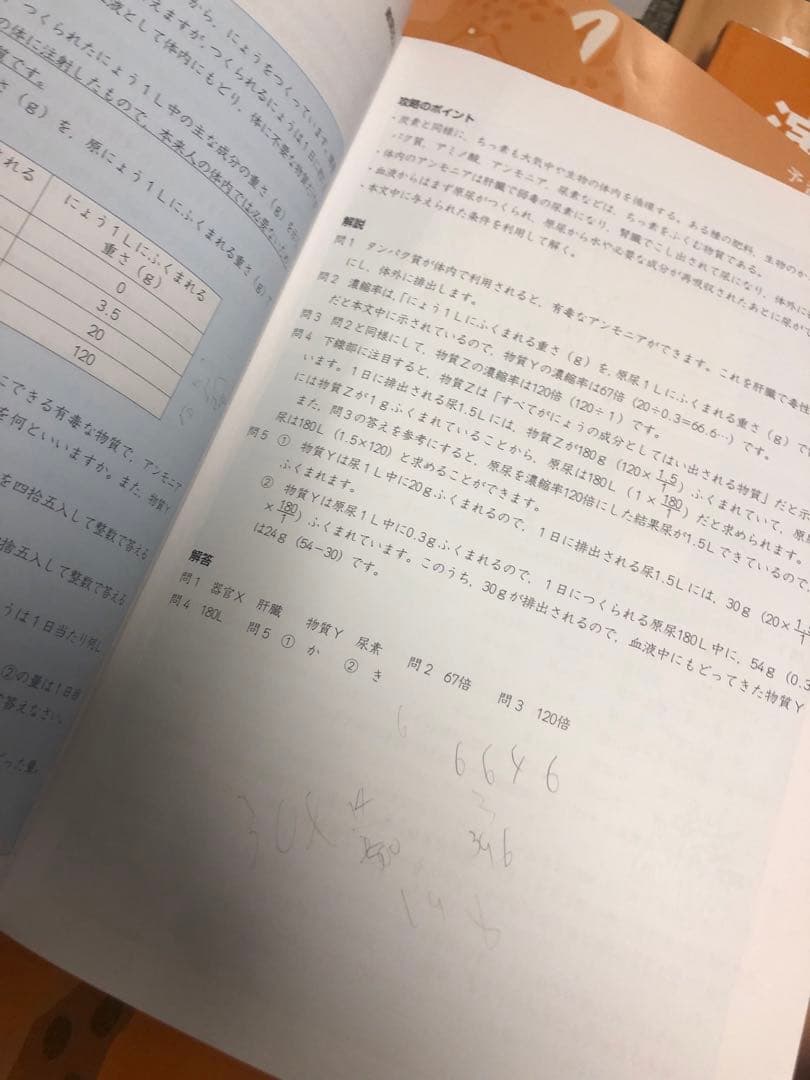 から、にょうをつくっています。
えますが、つくられるにょうは1日に
液として体内にもどり、体に不要な物質だ
つくられたにょう1L中の主な成分の重さ(g)を
の体に注射したもので、本来人の体内では必要ないため、
質です。
さ(g)を、原にょう1Lにふくまれる重さ(g)で
まれる
にょう1Lにふくまれる
重さ(g)
0
3.5
20
120
にできる有毒な物質で、アンモニア
を何といいますか。また、物質Y
を四捨五入して整数で答える
捨五入して整数で答える
うは1日当たり何L
②の量は1日当
で答えなさい。
どった量
攻略のポイント
・炭素と同様に、ちっ素も大気中や生物の体内を循環する。ある種の肥料、生物のか
パク質、アミノ酸、アンモニア、尿素などは、ちっ素をふくむ物質である。
・体内のアンモニアは肝臓で弱毒の尿素になり、腎臓でこし出されて尿になり、体外に
・血液からはまず原尿がつくられ、原尿から水や必要な成分が再吸収されたあとに尿がで
・本文中に与えられた条件を利用して解く。
解説
問1 タンパク質が体内で利用されると、有毒なアンモニアができます。これを肝臓で毒性
にし、体外に排出します。
問2 濃縮率は、「にょう1Lにふくまれる重さ(g)を、原尿1Lにふくまれる重さ(g)で
だと本文中に示されているので、物質Yの濃縮率は67倍(20÷0.3=66.6…)です。
問3 問2と同様にして、物質Zの濃縮率は120倍(120÷1)です。
問4 下線部に注目すると、物質Zは「すべてがにょうの成分としてはい出される物質」だと示
います。1日に排出される尿1.5Lには、物質Zが180g(120×1.5/1)ふくまれていて、原尿
には物質Zが1gふくまれていることから、原尿は180L(1×180/1)だと求められます。
また、問3の答えを参考にすると、原尿を濃縮率120倍にした結果尿が1.5Lできているので、
尿は180L(1.5×120)と求めることができます。
問5 ① 物質Yは尿1L中に20gふくまれるので、1日に排出される尿1.5Lには、30g(20×1.5/1)
ふくまれます。
② 物質Yは原尿1L中に0.3gふくまれるので、1日につくられる原尿180L中に、54g(0.3
×180/1)ふくまれています。このうち、30gが排出されるので、血液中にもどってきた物質Y
は24g(54−30)です。
解答
問1 器官X 肝臓 物質Y 尿素 問2 67倍 問3 120倍
問4 180L 問5 ① か ② き
6646
30×
346